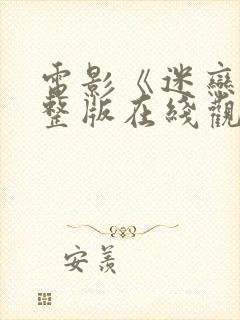 電影《迷戀
整版在綫觀
安羨